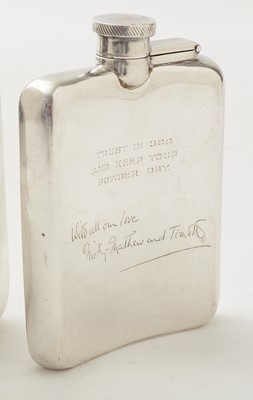 TRUST IN GOD
AND KEEP YOUR
POWDER DRY.
With all our love
Mathew and Timothy